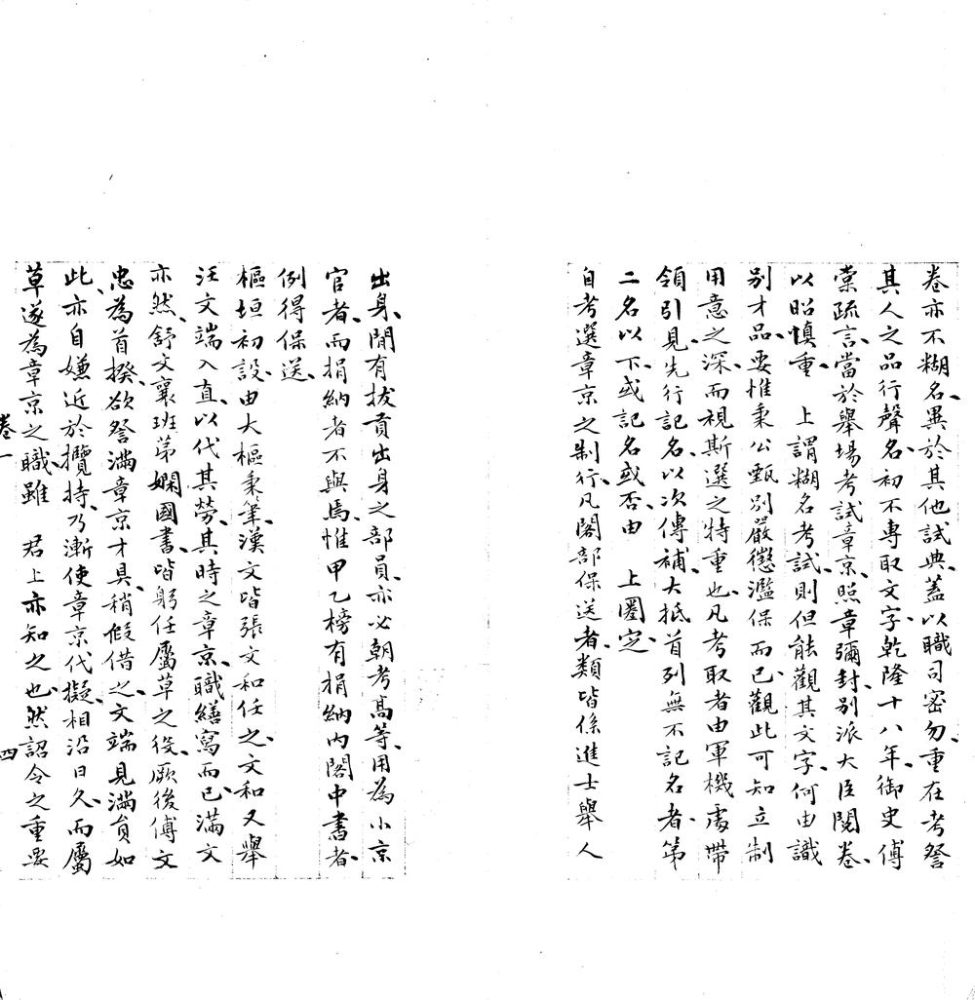 卷亦不糊名、異於其他試典、蓋以職司密勿、重在考詧
其人之品行聲名、初不專取文字、乾隆十八年、御史傅
棠疏言、當於舉場考試章京、照章彌封、別派大臣閱卷、
以昭慎重、上謂糊名考試、則但能觀其文字、何由識
別才品、要惟秉公甄別、嚴懲濫保而已、觀此可知立制
用意之深、而視斯選之特重也、凡考取者、由軍機處帶
領引見、先行記名、以次傳補、大抵首列無不記名者、第
二名以下、或記名或否、由 上圈定、
自考選章京之制行、凡閣部保送者、類皆係進士舉人
出身、閒有拔貢出身之部員、亦必朝考高等、用為小京
官者、而捐納者不與焉、惟甲乙榜有捐納內閣中書者、
例得保送、
樞垣初設、由大樞秉筆、漢文皆張文和任之、文和又舉
汪文端入直、以代其勞、其時之章京、職繕寫而已、滿文
亦然、舒文襄班第嫻國書、皆躬任屬草之役、厥後傅文
忠為首揆、欲詧滿章京才具、稍假借之、文端見滿員如
此、亦自嫌近於攬持、乃漸使章京代擬、相沿日久、而屬
草遂為章京之職、雖 君上亦知之也、然詔令之重要
卷一 四